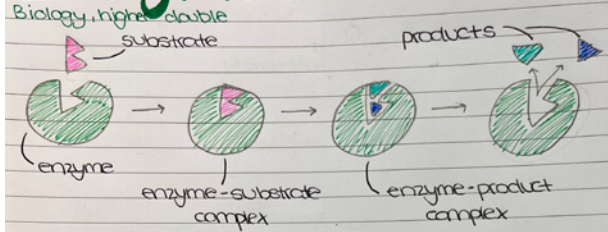 Biology, higher double
substrate
products
enzyme
enzyme-substrate
complex
enzyme-product
complex